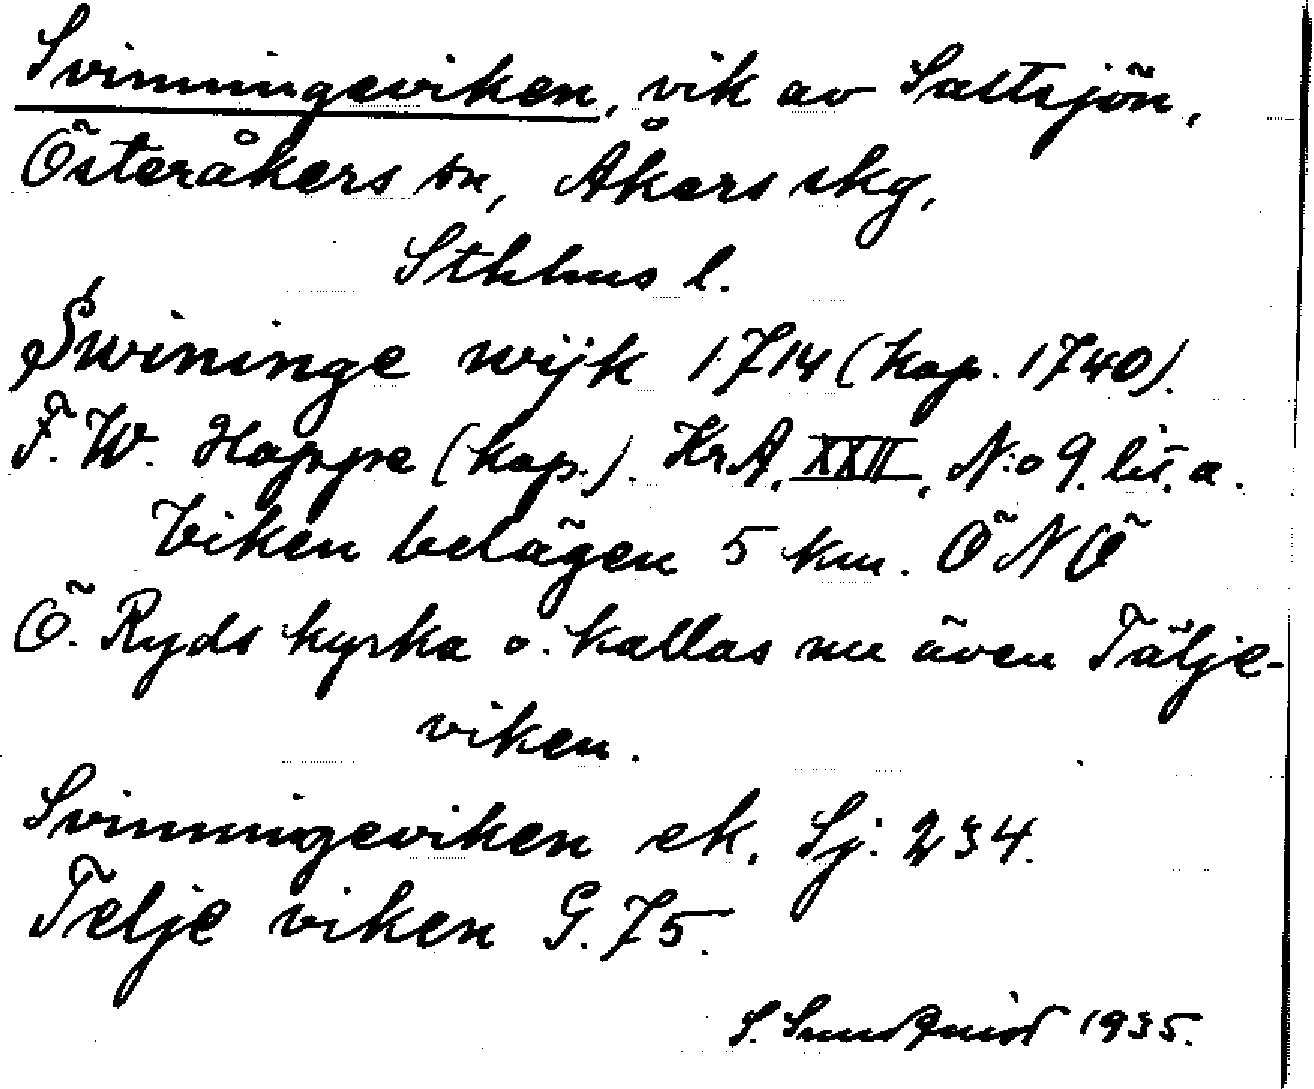 Svinningeviken, vik av Saltsjön,
Österåkers sn, Åkers skg,
Sthlms l.
Swininge wijk 1714 (kop. 1740).
F. W. Hoppe (kop.). KrA, XXII, N:o 9. lit. a.
Viken belägen 5 km. ÖNÖ
Ö. Ryds kyrka o. kallas nu även Tälje-
viken.
Svinningeviken ek. Sj. 234.
Telje viken G. 75.
S. Sundquist 1935.